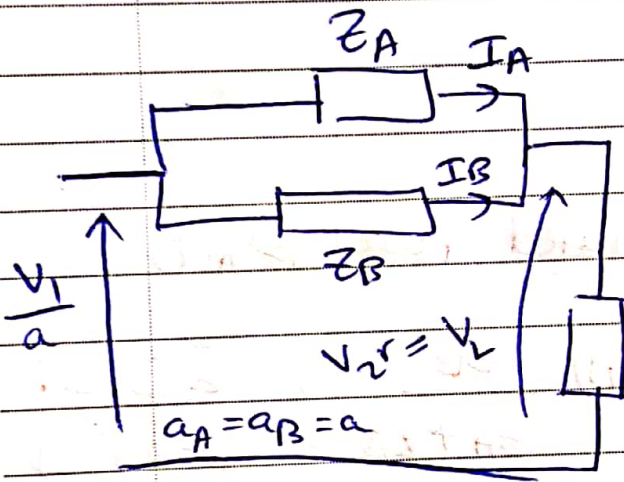 Z_A
I_A
I_B
Z_B
V_1/a
V_2^r = V_2
a_A = a_B = a